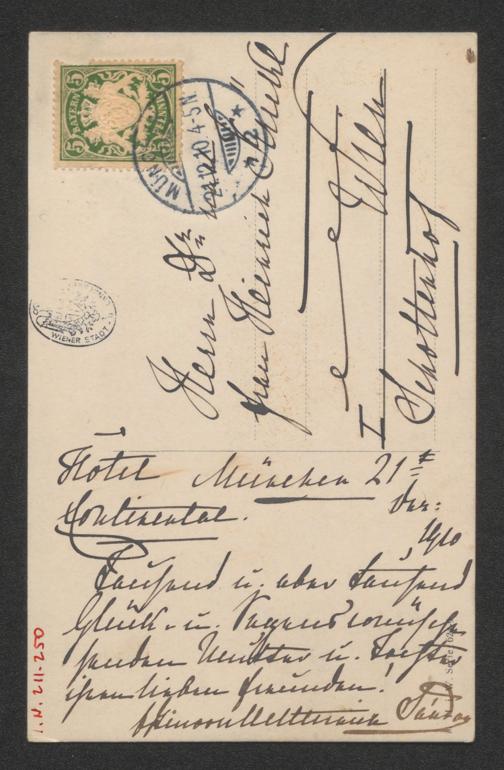 BAYERN
5 5
5 5
MÜN
21.12.10 4-5 N
2
WIENER STADT-
Herrn Dr
Frau Heinrich
Wien
I
Schottenhof
Hotel München 21
Continental. Dez:
1910
Tausend u. aber Tausend
Glück- u. Segenswünsche
senden Mutter u. Tochter
ihren lieben Freunden!
I.N. 211.250